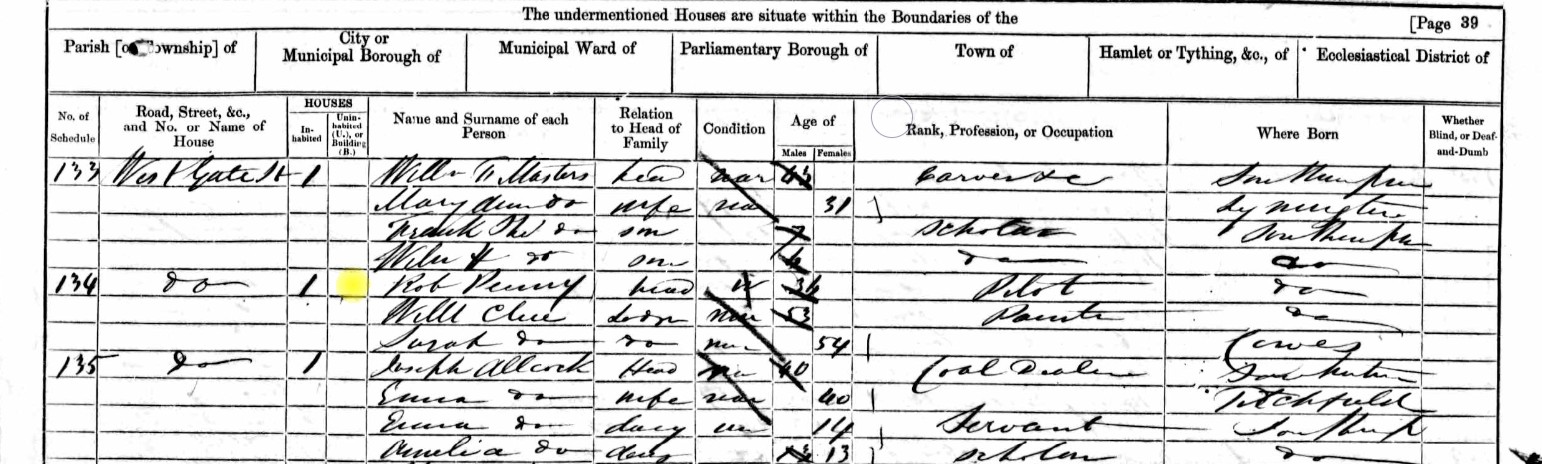 The undermentioned Houses are situate within the Boundaries of the
[Page 39
Parish [or Township] of City or Municipal Borough of Municipal Ward of Parliamentary Borough of Town of Hamlet or Tything, &c., of Ecclesiastical District of
No. of Schedule Road, Street, &c., and No. or Name of House HOUSES In-habited Unin-habited (U.), or Building (B.) Name and Surname of each Person Relation to Head of Family Condition Age of Males Females Rank, Profession, or Occupation Where Born Whether Blind, or Deaf-and-Dumb
133 West Gate St 1 Masters head mar Carver &c Southampton
Mary Ann do wife mar 31 Lymington
Frank do son 7 Scholar Southampton
H do son do do
134 do 1 Rob Penny head 36 Pilot do
Will Clue Lodgr mar 53 do
Sarah do do mar 54 Cowes
135 do 1 Joseph Allcock Head mar 40 Coal Dealer Southampton
Emma do wife mar 40 Titchfield
Emma do daug un 14 Servant Southamp
Amelia do daug 13 Scholar do